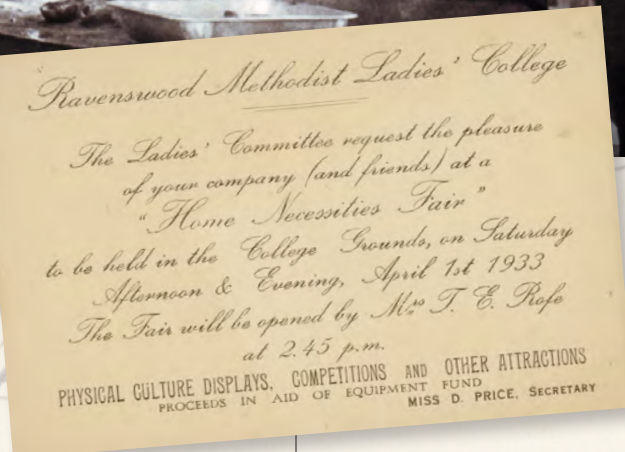 Ravenswood Methodist Ladies' College
The Ladies' Committee request the pleasure
of your company (and friends) at a
"Home Necessities Fair"
to be held in the College Grounds, on Saturday
Afternoon & Evening, April 1st 1933
The Fair will be opened by Mrs T. E. Rofe
at 2.45 p.m.
PHYSICAL CULTURE DISPLAYS, COMPETITIONS AND OTHER ATTRACTIONS
PROCEEDS IN AID OF EQUIPMENT FUND
MISS D. PRICE, SECRETARY